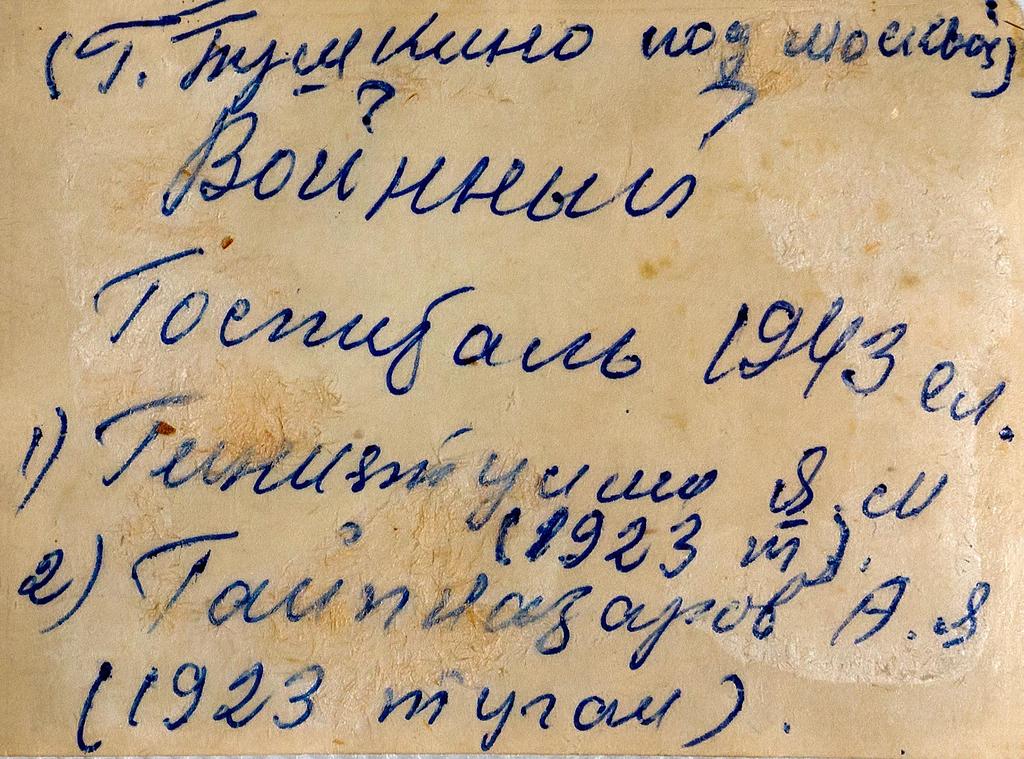 (г. Пушкино под Москвой)
?
Войнный
Госпиталь 1943 ел.
1) Гиниятулло Я. М
(1923 т).
2) Тайпназаров А. Я
(1923 туган).